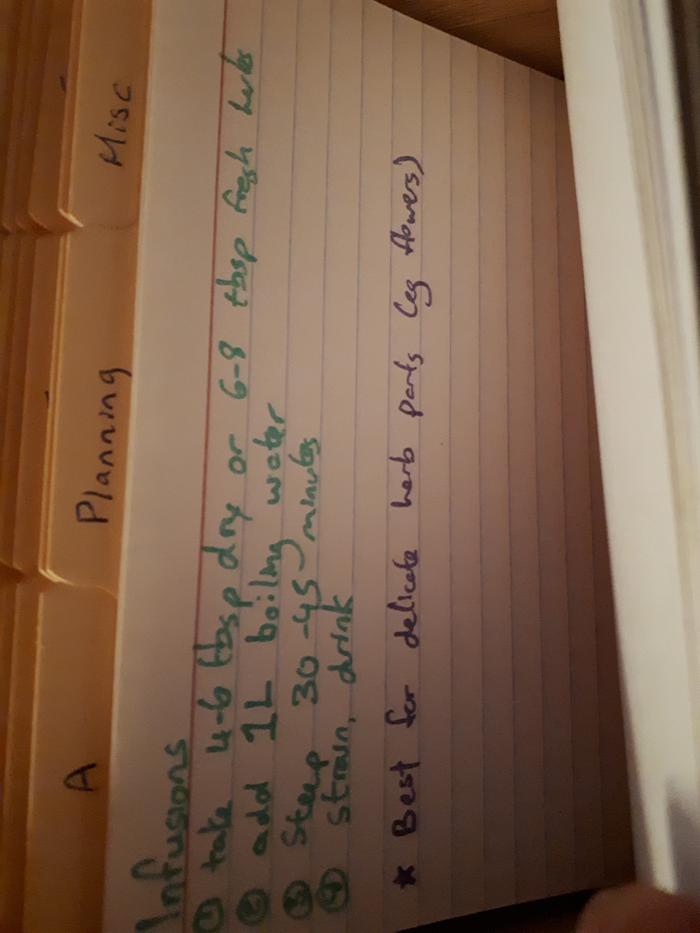 A
Planning
Misc
Infusions
① take 4-6 tbsp dry or 6-8 tbsp fresh herbs
② add 1L boiling water
③ Steep 30-45 minutes
④ strain, drink
* Best for delicate herb parts (eg flowers)